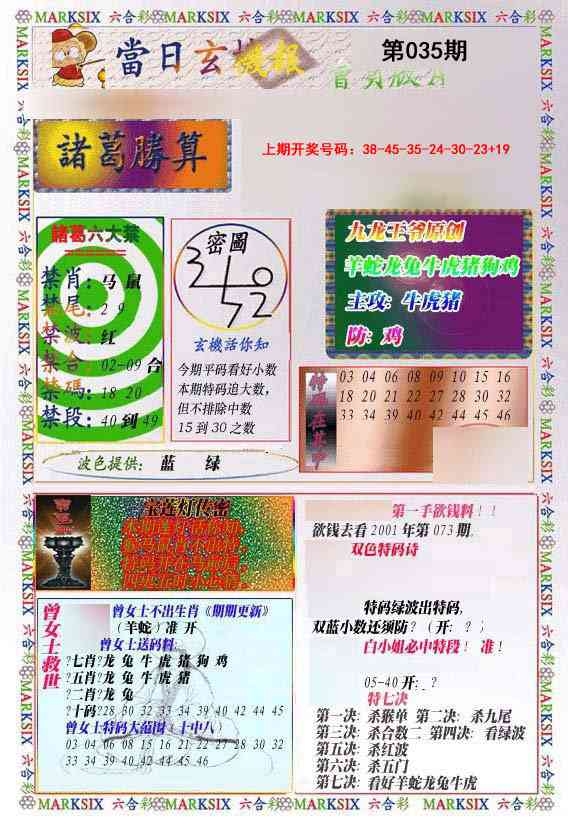 MARKSIX 六合彩 MARKSIX 六合彩 MARKSIX 六合彩 MARKSIX 六合彩 MARKSIX 六合彩 MARKSIX 六合彩 MARKSIX
當日玄機報
第035期
諸葛勝算
上期开奖号码：38-45-35-24-30-23+19
諸葛六大禁
禁肖：马 鼠
禁尾：2 9
禁波：红
禁合：02-09 合
禁碼：18 20
禁段：40 到 49
密圖
玄機活你知
今期平码看好小数
本期特码追大数，
但不排除中数
15 到 30 之数
九龙王爷原创
羊蛇龙兔牛虎猪狗鸡
主攻：牛虎猪
防：鸡
特碼在其中
03 04 06 08 09 10 15 16
18 20 21 22 27 28 30 32
33 34 39 40 42 44 45 46
波色提供： 蓝 绿
宝莲灯传密
第一手欲钱料！！
欲钱去看 2001 年第 073 期。
双色特码诗
特码绿波出特码，
双蓝小数还须防？（开：？）
白小姐必中特段！ 准！
05-40 开：_？
特七决
第一决：杀猴单 第二决：杀九尾
第三决：杀合数二 第四决：看绿波
第五决：杀红波
第六决：杀五门
第七决：看好羊蛇龙兔牛虎
曾女士救世
曾女士不出生肖《期期更新》
（羊蛇）准 开
曾女士送码料:
?七肖?龙 兔 牛 虎 猪 狗 鸡
?五肖?龙 兔 牛 虎 猪
?二肖?龙 兔
?十码?28 30 32 33 34 39 40 42 44 45
曾女士特码大范围（十中八）
03 04 06 08 15 16 21 22 27 28 30 32
33 34 39 40 42 44 45 46
MARKSIX 六合彩 MARKSIX 六合彩 MARKSIX 六合彩 MARKSIX 六合彩 MARKSIX 六合彩 MARKSIX 六合彩 MARKSIX